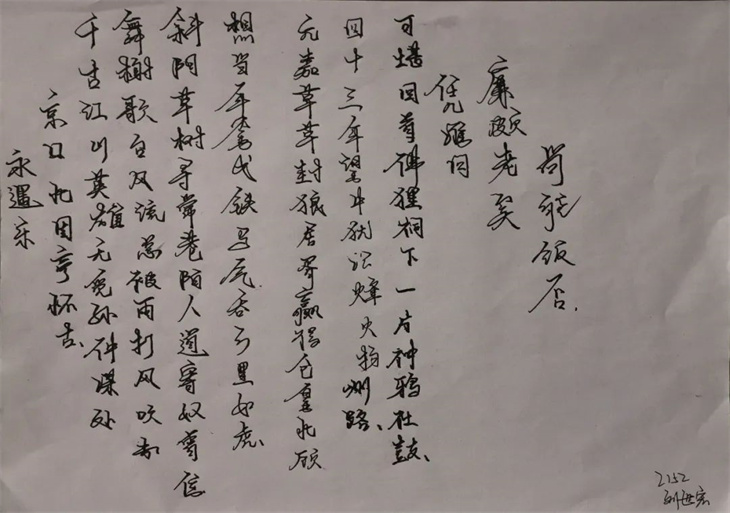 永遇乐
京口北固亭怀古
千古江山英雄无觅孙仲谋处
舞榭歌台风流总被雨打风吹去
斜阳草树寻常巷陌人道寄奴曾住
想当年金戈铁马气吞万里如虎、
元嘉草草封狼居胥赢得仓皇北顾
四十三年望中犹记烽火扬州路、
可堪回首佛狸祠下一片神鸦社鼓、
凭谁问
廉颇老矣
尚能饭否.
2152
刘世宏